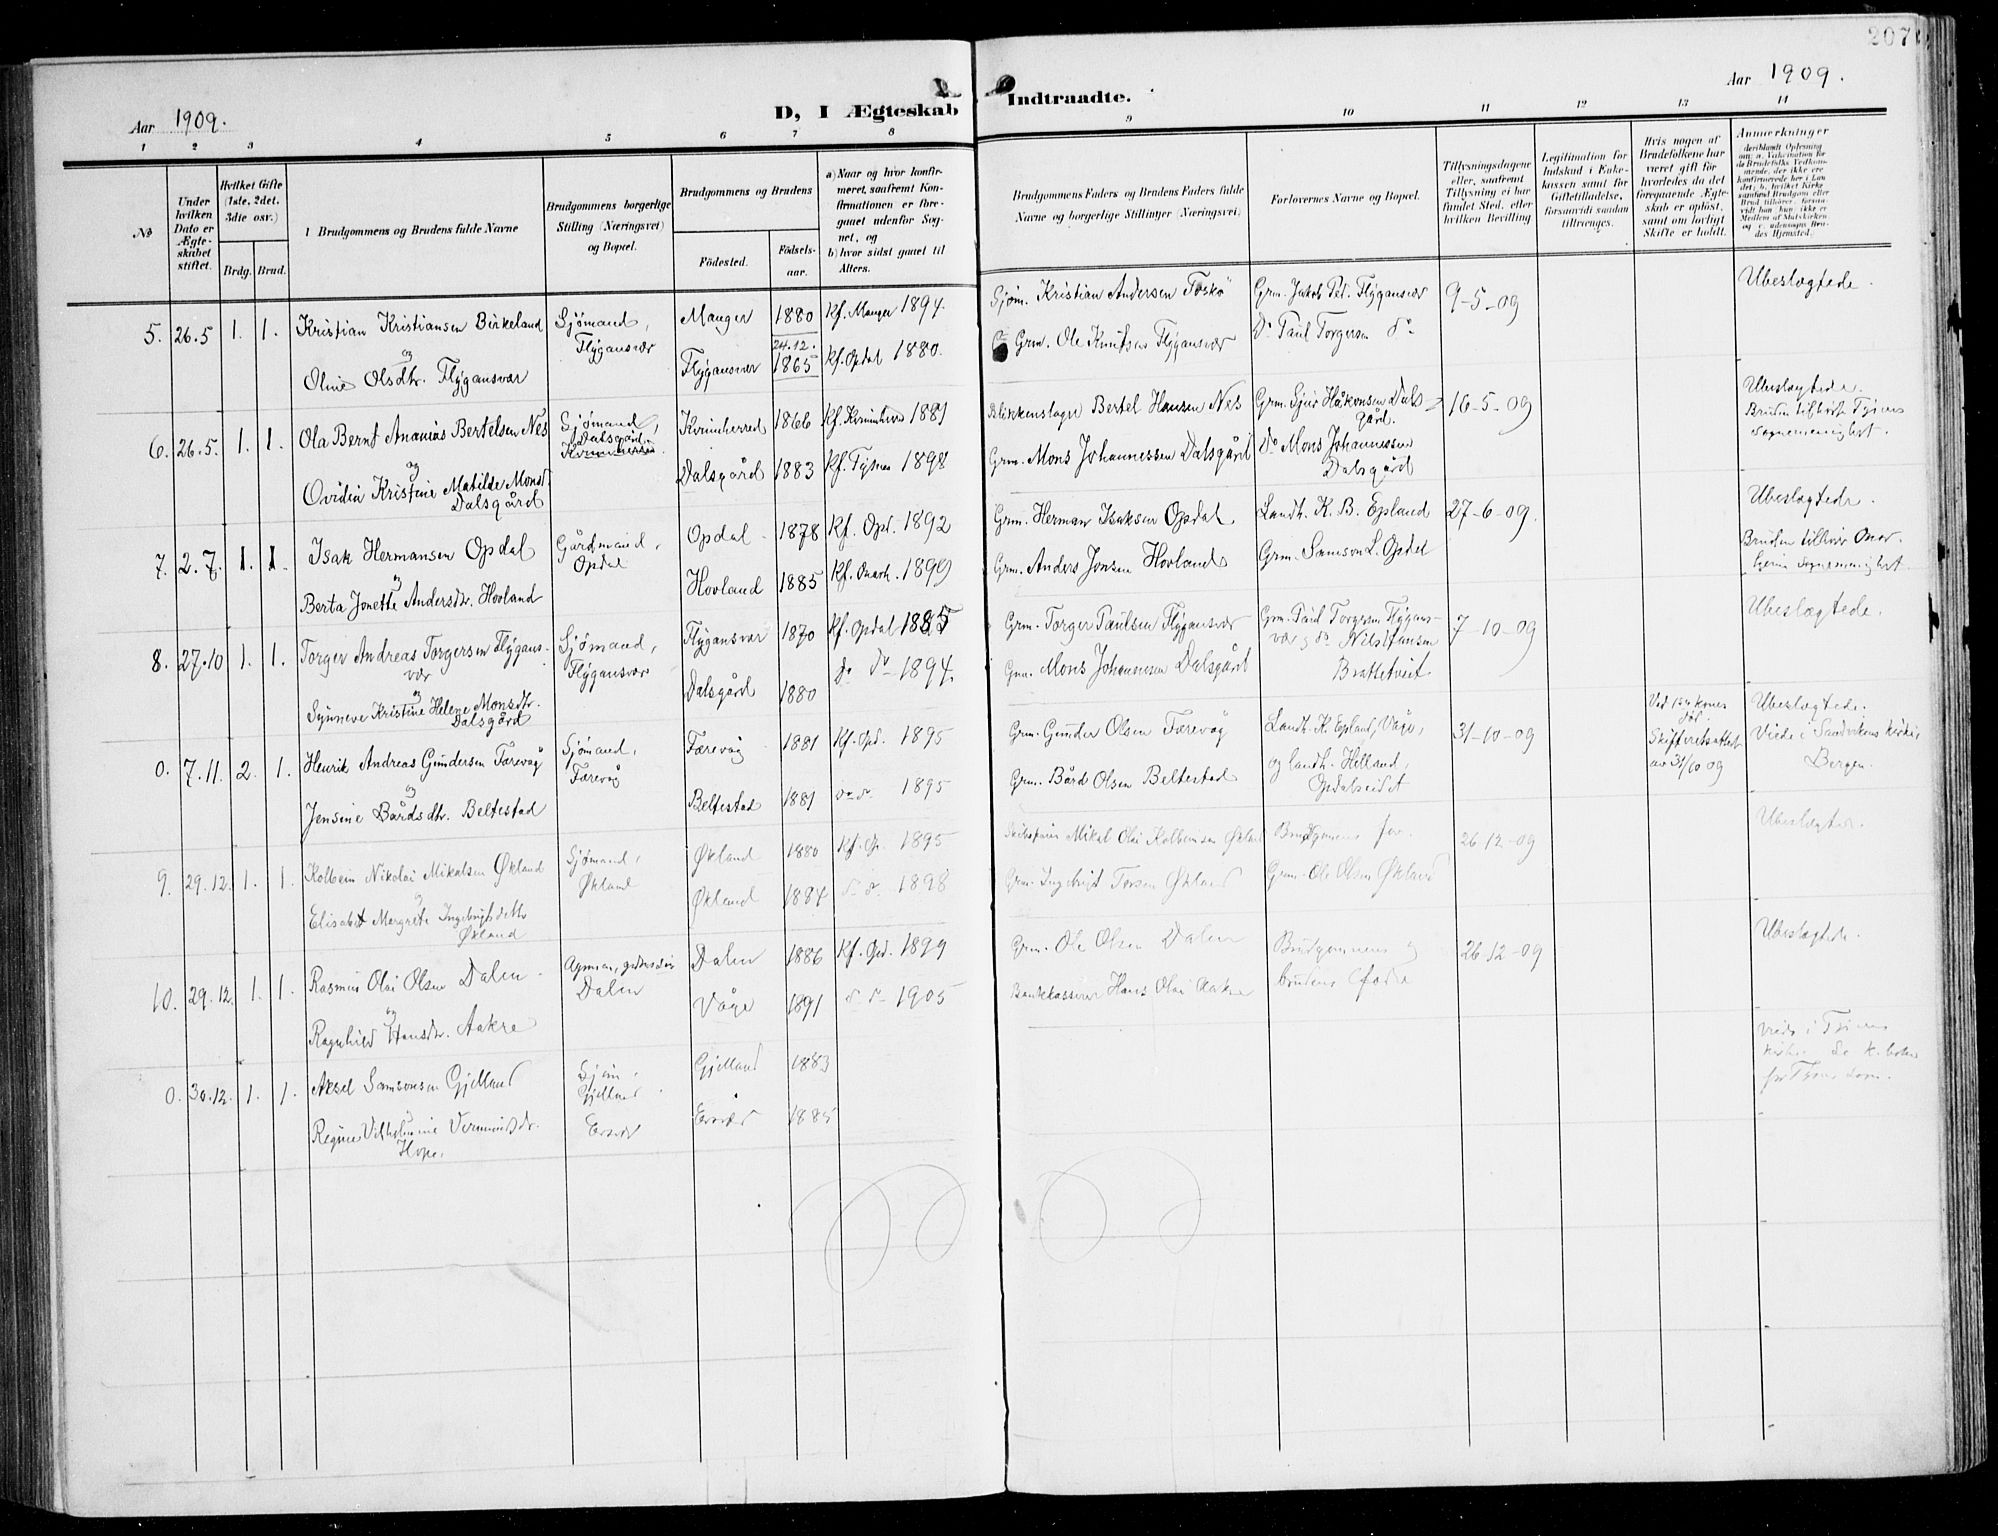 207
Aar 1909.
D, I Ægteskab Indtraadte.
Aar 1909.
1 2 3 4 5 6 7 8 9 10 11 12 13 14
No
Under hvilken Dato er Ægteskabet stiftet.
Hvilket Gifte (1ste, 2det, 3die osv.)
Brdg. Brud.
Brudgommens og Brudens fulde Navne
Brudgommens borgerlige Stilling (Næringsvei) og Bopæl.
Brudgommens og Brudens
Födested.
Födsels-aar.
a) Naar og hvor konfirmeret, saafremt Konfirmationen er foregaaet udenför Sognet, og
b) hvor sidst gaaet til Alters.
Brudgommens Faders og Brudens Faders fulde Navne og borgerlige Stillinger (Næringsvei)
Forlovernes Navne og Bopæl.
Tillysningsdagene eller, saafremt Tillysning ei har fundet Sted, efter hvilken Bevilling
Legitimation for Indskud i Enkekassen samt for Giftetilladelse, forsaavidt saadan tiltrænges.
Hvis nogen af Brudefolkene har været gift för hvorledes da det foregaaende Ægteskab er oplöst, samt om lovligt Skifte er holdt.
Anmærkninger
5. 26.5 1. 1. Kristian Kristiansen Birkeland
og
Oline Olsdtr. Flÿgansvær
Sjömand,
Flÿgansvær
Manger 1880 Kf. Manger 1894.
Flÿgansvær 24.12. 1865 Kf. Opdal 1880.
Sjöm. Kristian Andersen Toskö
Grm. Ole Knutsen Flÿgansvær
Grm. Jakob Ped. Flÿgansvær
Do Paul Torgersen do
9-5-09
Ubeslægtede.
6. 26.5. 1. 1. Ola Bernt Ananias Bertelsen Nes
og
Ovidia Kristine Matilde Monsd.
Dalsgård
Sjömand,
Dalsgård
Kvinnherred 1866 Kf. Kvinnherr 1881
Dalsgård 1883 Kf. Tysnes 1898
Blikkenslager Bertel Hansen Nes
Grm. Mons Johannessen Dalsgård
Grm. Sjur Håkonsen Dalsgård.
Do Mons Johannessen
Dalsgård
16-5-09
Ubeslægtede.
Bruden tilhörer Tysnes
Sognemenighet.
7. 2.7. 1. 1. Isak Hermansen Opdal
og
Berta Jonette Andersdtr. Hovland
Gårdmand,
Opdal
Opdal 1878 Kf. Opd. 1892
Hovland 1885 Kf. Onarh. 1899
Grm. Herman Isaksen Opdal
Grm. Anders Jonsen Hovland
Landh. K. B. Epland
Grm. Samson L. Opdal
27-6-09.
Ubeslægtede
Bruden tilhörer Onar-
heims Sognemenighet.
8. 27.10 1. 1. Torger Andreas Torgersen Flÿgans-
vær
og
Synneve Kristine Helene Monsdtr.
Dalsgård
Sjömand,
Flÿgansvær
Flÿgansvær 1870 Kf. Opdal 1885
Dalsgård 1880 do do 1894.
Grm. Torger Paulsen Flÿgansvær
Grm. Mons Johannesen Dalsgård
Grm. Paul Torgersen Flÿgans-
vær, do Nils Hansen
Brattetveit
7-10-09
Ubeslægtede.
0. 7.11. 2. 1. Henrik Andreas Gundersen Færevåg
og
Jensine Bårdsdtr. Beltestad
Sjömand,
Færevåg
Færevåg 1881 Kf. Opd. 1895
Beltestad 1881 do do 1895
Grm. Gunder Olsen Færevåg
Grm. Bård Olsen Beltestad
Landh. K. Epland, Våge,
og landh. Helland,
Opdalseidet
31-10-09
Ved 1ste kones
död.
Skifteretsattest
av 31/10 09
Ubeslægtede.
Viede i Sandvikens kirke,
Bergen.
9. 29.12. 1. 1. Kolbein Nikolai Mikalsen Økland
og
Elisabet Margrete Ingebrigtsdtr
Økland
Sjömand,
Økland
Økland 1880 Kf. Op. 1895
Økland 1884 do do 1898
Mikal Olai Kolbeinsen Økland
Grm. Ingebrigt Torsen Økland
Brudgomens far
Grm. Ole Olsen Økland
26-12-09
Ubeslægtede.
10. 29.12. 1. 1. Rasmus Olai Olsen Dalen
og
Ragnhild Hansdtr. Aakre
Dalen
Dalen 1886 Kf. Opd. 1899
Våge 1891 do do 1905
Grm. Ole Olsen Dalen
Bankkasserer Hans Olai Aakre
Brudgommens og
brudens fædre
26-12-09
Ubeslægtede.
0. 30.12. 1. 1. Aksel Samsonsen Gjelland
Regine Vilhelmine
Hope.
Sjöm.
Gjelland
Ersvær
Gjelland 1883
Ersvær 1885
Viede i Tysnes
kirke.